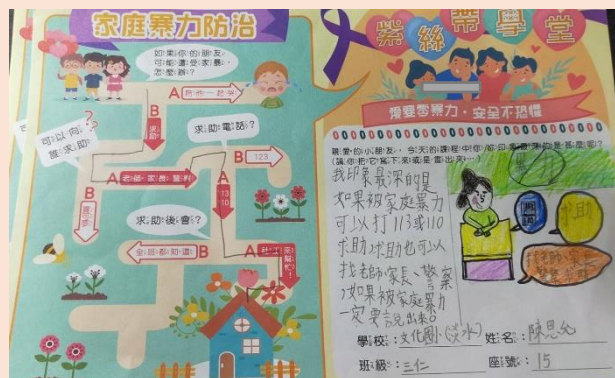 家庭暴力防治
如果你的朋友
可能遭受家暴，
怎麼辦？
A 陪他一起哭
B
求助
可以向
誰求助
?
求助電話？
B 123
A 老師、家長、警察
A
113
110
B
求助後會？
全班都知道 B
A 社工來
幫忙！
紫絲帶學堂
我要零暴力，安全不恐懼
親愛的小朋友，今天的課程中你
我印象最深的是
如果被家庭暴力
可以打113或110
求助，求助也可以
找老師、家長、警察
,如果被家庭暴力
一定要說出來。
求助
學校：文化國小(淡水)
姓名：陳思允
班級：三仁
座號：15